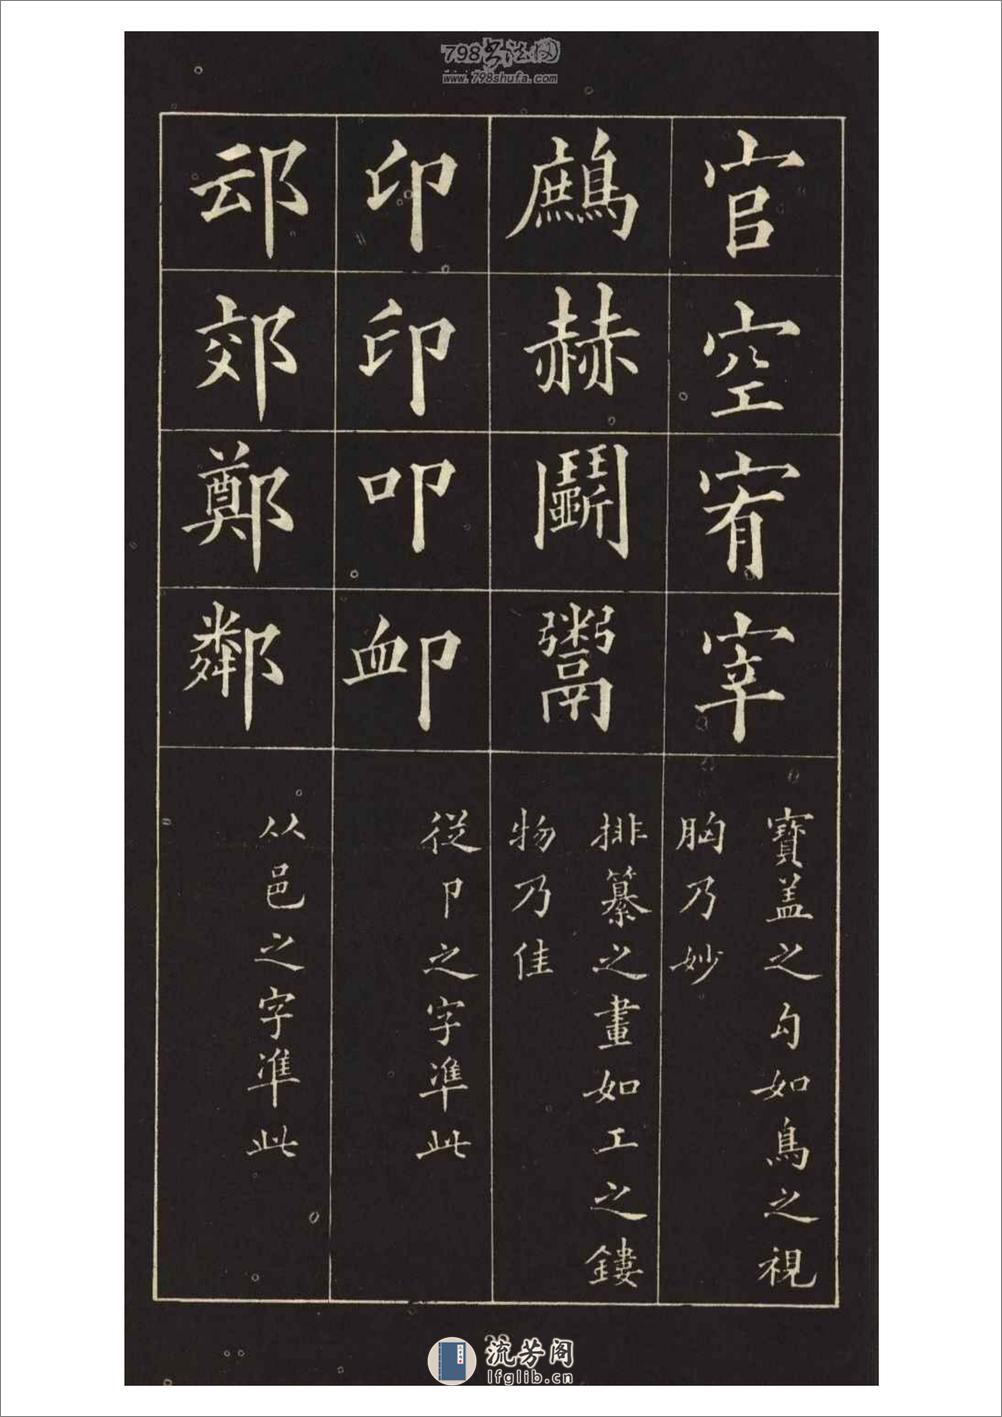 798书法网
www.798shufa.com
官空宥宰
寶盖之勾如鳥之視
胸乃妙
鷓赫鬭鬻
排纂之畫如工之鏤
物乃佳
印印叩卹
從卩之字準此
邧郊鄭鄰
从邑之字準此
流芳阁
lfglib.cn